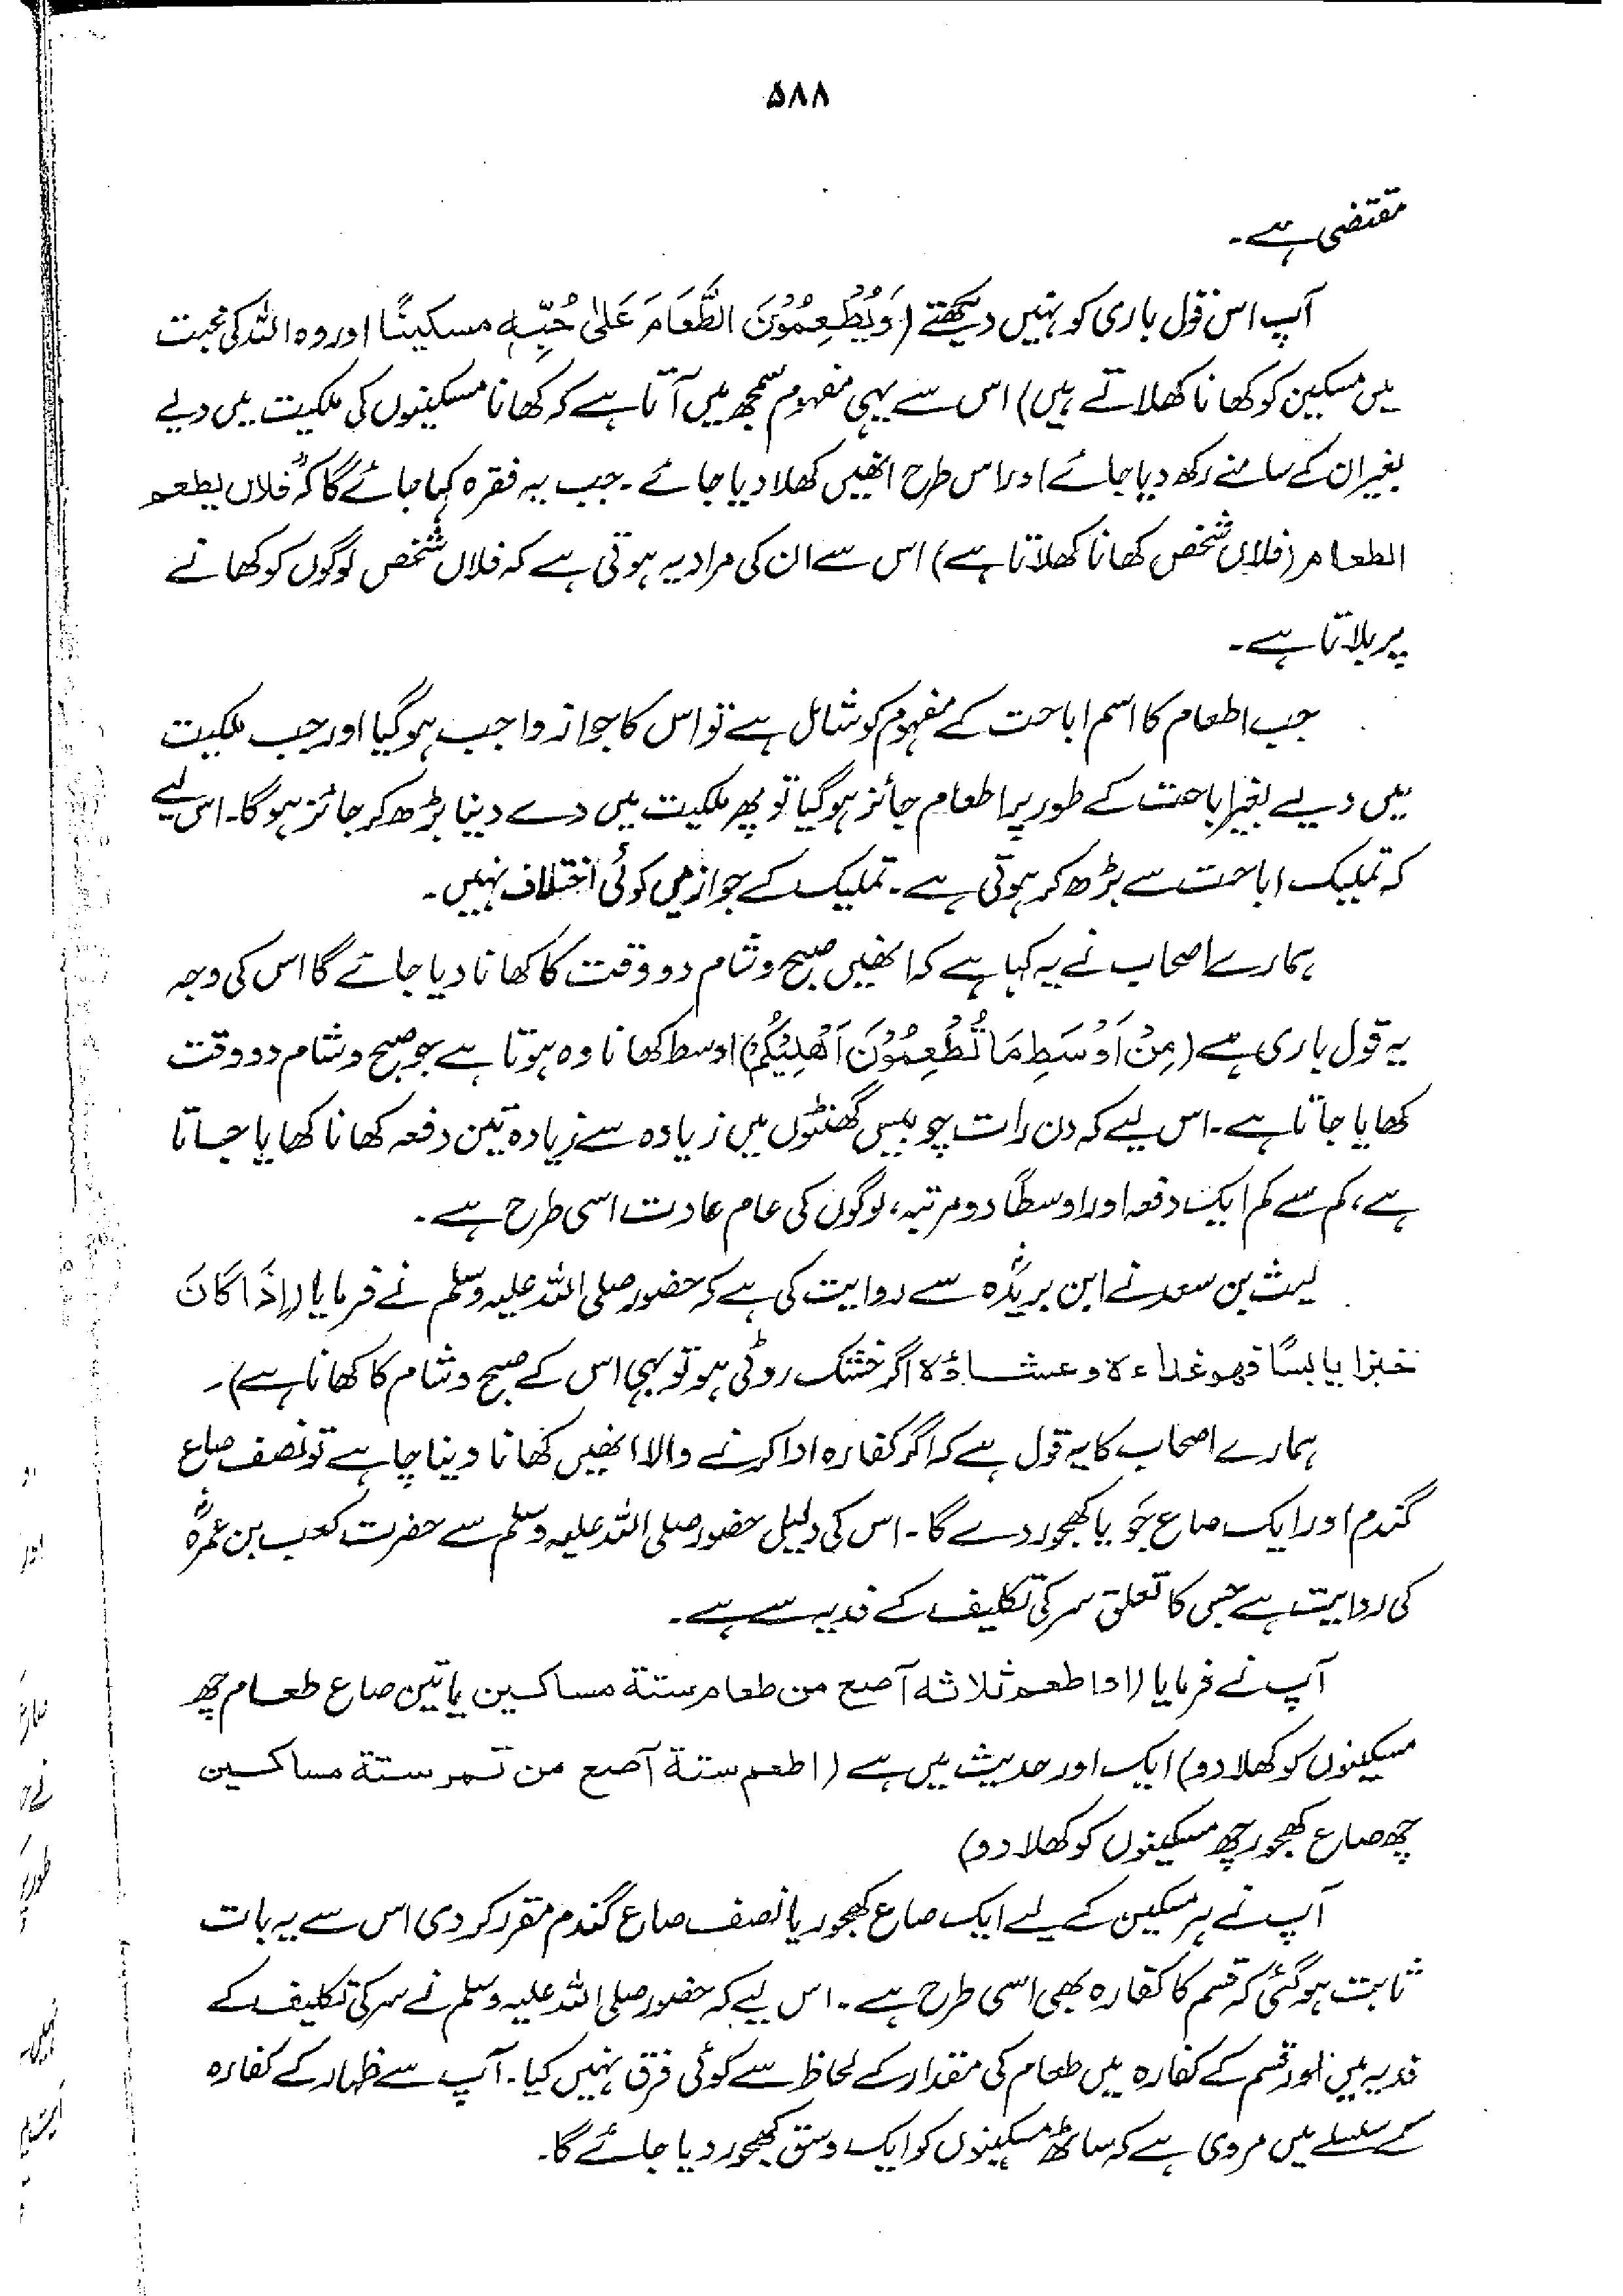 ۵۸۸
مقتضی ہے۔
آپ اس قول باری کو نہیں دیکھتے (وَیُطْعِمُوْنَ الطَّعَامَ عَلٰی حُبِّہٖ مسکینًا اور وہ اللہ کی محبت
میں مسکین کو کھانا کھلاتے ہیں) اس سے یہی مفہوم سمجھ میں آتا ہے کہ کھانا مسکینوں کی ملکیت میں دیے
بغیر ان کے سامنے رکھ دیا جائے اور اس طرح انھیں کھلا دیا جائے۔ جب یہ فقرہ کہا جائے گا کہ "فلاں یطعم
الطعام (فلاں شخص کھانا کھلاتا ہے) اس سے ان کی مراد یہ ہوتی ہے کہ فلاں شخص لوگوں کو کھانے
پر بلاتا ہے۔
جب اطعام کا اسم اباحت کے مفہوم کو شامل ہے تو اس کا جواز واجب ہو گیا اور جب ملکیت
میں دیے بغیر اباحت کے طور پر اطعام جائز ہو گیا تو پھر ملکیت میں دے دینا بڑھ کر جائز ہو گا۔ اس لیے
کہ تملیک اباحت سے بڑھ کر ہوتی ہے۔ تملیک کے جواز میں کوئی اختلاف نہیں۔
ہمارے اصحاب نے یہ کہا ہے کہ انھیں صبح و شام دو وقت کا کھانا دیا جائے گا اس کی وجہ
یہ قول باری ہے (مِنْ اَوْسَطِ مَا تُطْعِمُوْنَ اَھْلِیْکُمْ) اوسط کھانا وہ ہوتا ہے جو صبح و شام دو وقت
کھایا جاتا ہے۔ اس لیے کہ دن رات چوبیس گھنٹوں میں زیادہ سے زیادہ تین دفعہ کھانا کھایا جاتا
ہے، کم سے کم ایک دفعہ اور اوسطًا دو مرتبہ، لوگوں کی عام عادت اسی طرح ہے۔
لیث بن سعد نے ابن بریدہؓ سے روایت کی ہے کہ حضور صلی اللہ علیہ وسلم نے فرمایا (اِذَا کَانَ
خبزا یابسًا فھو غداءہ وعشاؤہ اگر خشک روٹی ہو تو یہی اس کے صبح و شام کا کھانا ہے)۔
ہمارے اصحاب کا یہ قول ہے کہ اگر کفارہ ادا کرنے والا انھیں کھانا دینا چاہے تو نصف صاع
گندم اور ایک صاع جَو یا کھجور دے گا۔ اس کی دلیل حضور صلی اللہ علیہ وسلم سے حضرت کعب بن عمرہؓ
کی روایت ہے جس کا تعلق سر کی تکلیف کے فدیہ سے ہے۔
آپ نے فرمایا (او اطعم ثلاثۃ آصع من طعام ستۃ مساکین یا تین صاع طعام چھ
مسکینوں کو کھلا دو) ایک اور حدیث میں ہے (اطعم ستۃ آصع من تمر ستۃ مساکین
چھ صاع کھجور چھ مسکینوں کو کھلا دو)
آپ نے ہر مسکین کے لیے ایک صاع کھجور یا نصف صاع گندم مقرر کر دی اس سے یہ بات
ثابت ہو گئی کہ قسم کا کفارہ بھی اسی طرح ہے۔ اس لیے کہ حضور صلی اللہ علیہ وسلم نے سر کی تکلیف کے
فدیہ میں اور قسم کے کفارہ میں طعام کی مقدار کے لحاظ سے کوئی فرق نہیں کیا۔ آپ سے ظہار کے کفارہ
کے سلسلے میں مروی ہے کہ ساٹھ مسکینوں کو ایک وسق کھجور دیا جائے گا۔